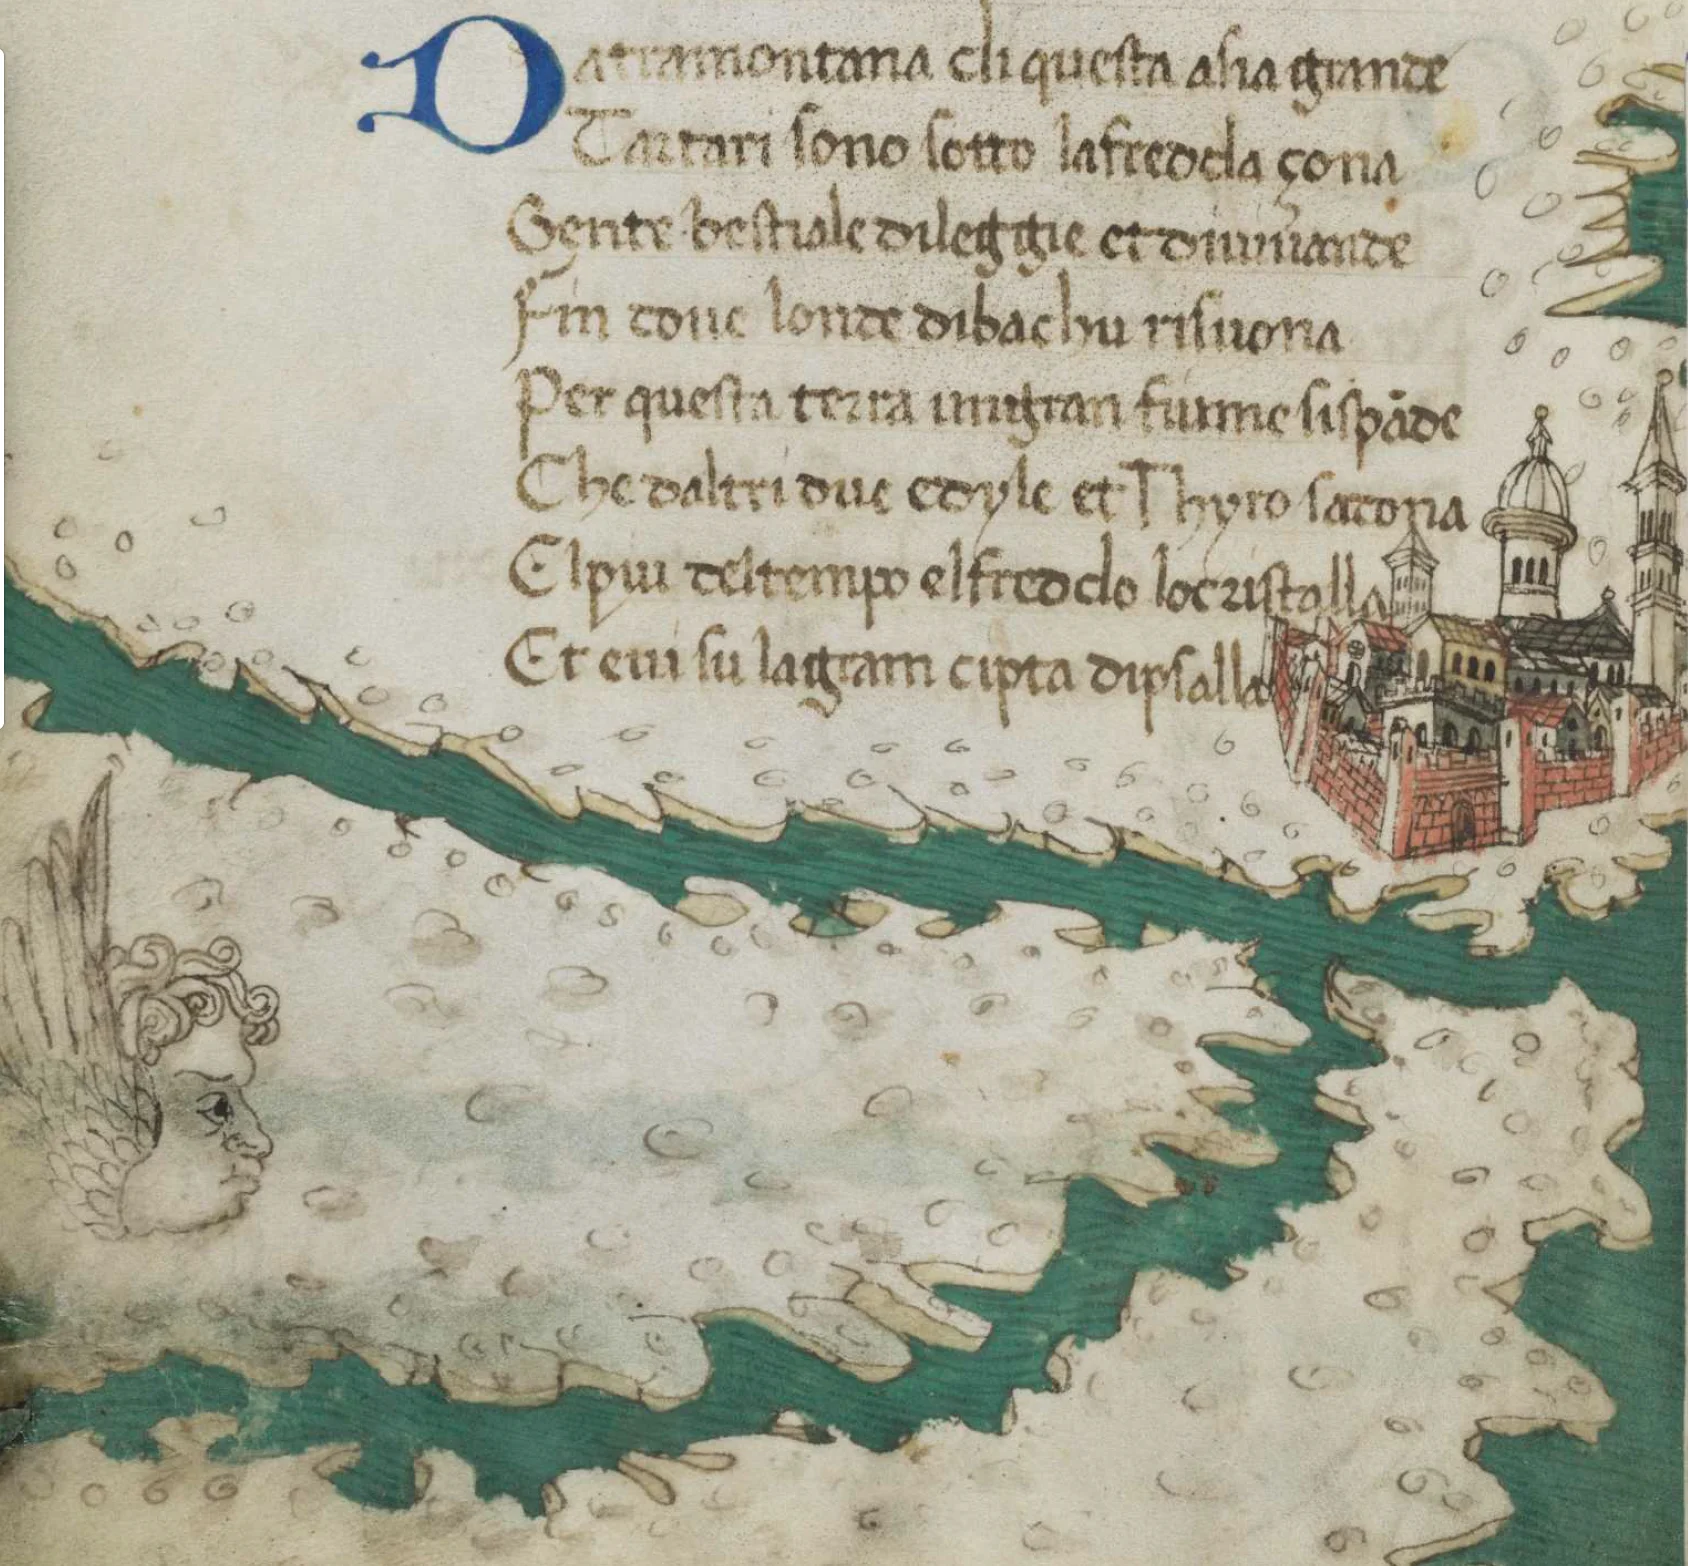 Datramontana di questa asia grande
Tartari sono sotto lafredda çona
Gente bestiale dileggie et diuiuande
Fin doue londe dibachu risuona
Per questa terra un gran fiume sispāde
Che daltri due edyle et Thyro sadona
El piu deltempo elfreddo locristalla
Et eui su lagram cipta dipsalla